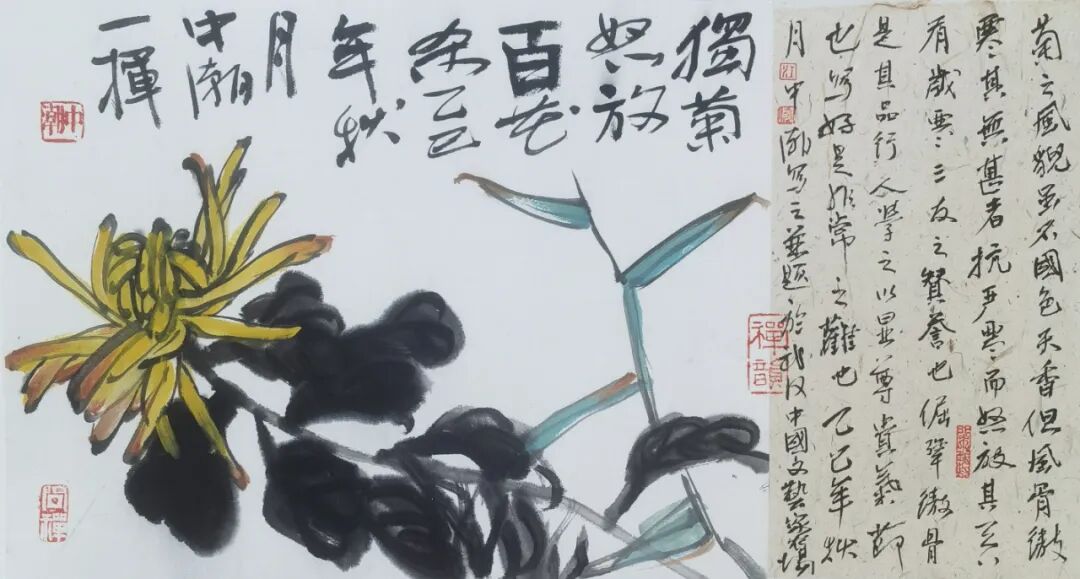 菊之風貌虽不國色天香但風骨傲
寒其無甚者抗严寒而怒放其
有歲寒三友之贊誉也倔犟傲骨
是其品行人學之以显尊氣節
也写好是非常之難也乙巳年秋
月中潮写之并题於武汉中國文藝家
禪韻
獨菊
怒放
百花
杀乙巳
年秋
月
中潮
一揮
中潮
尚禪